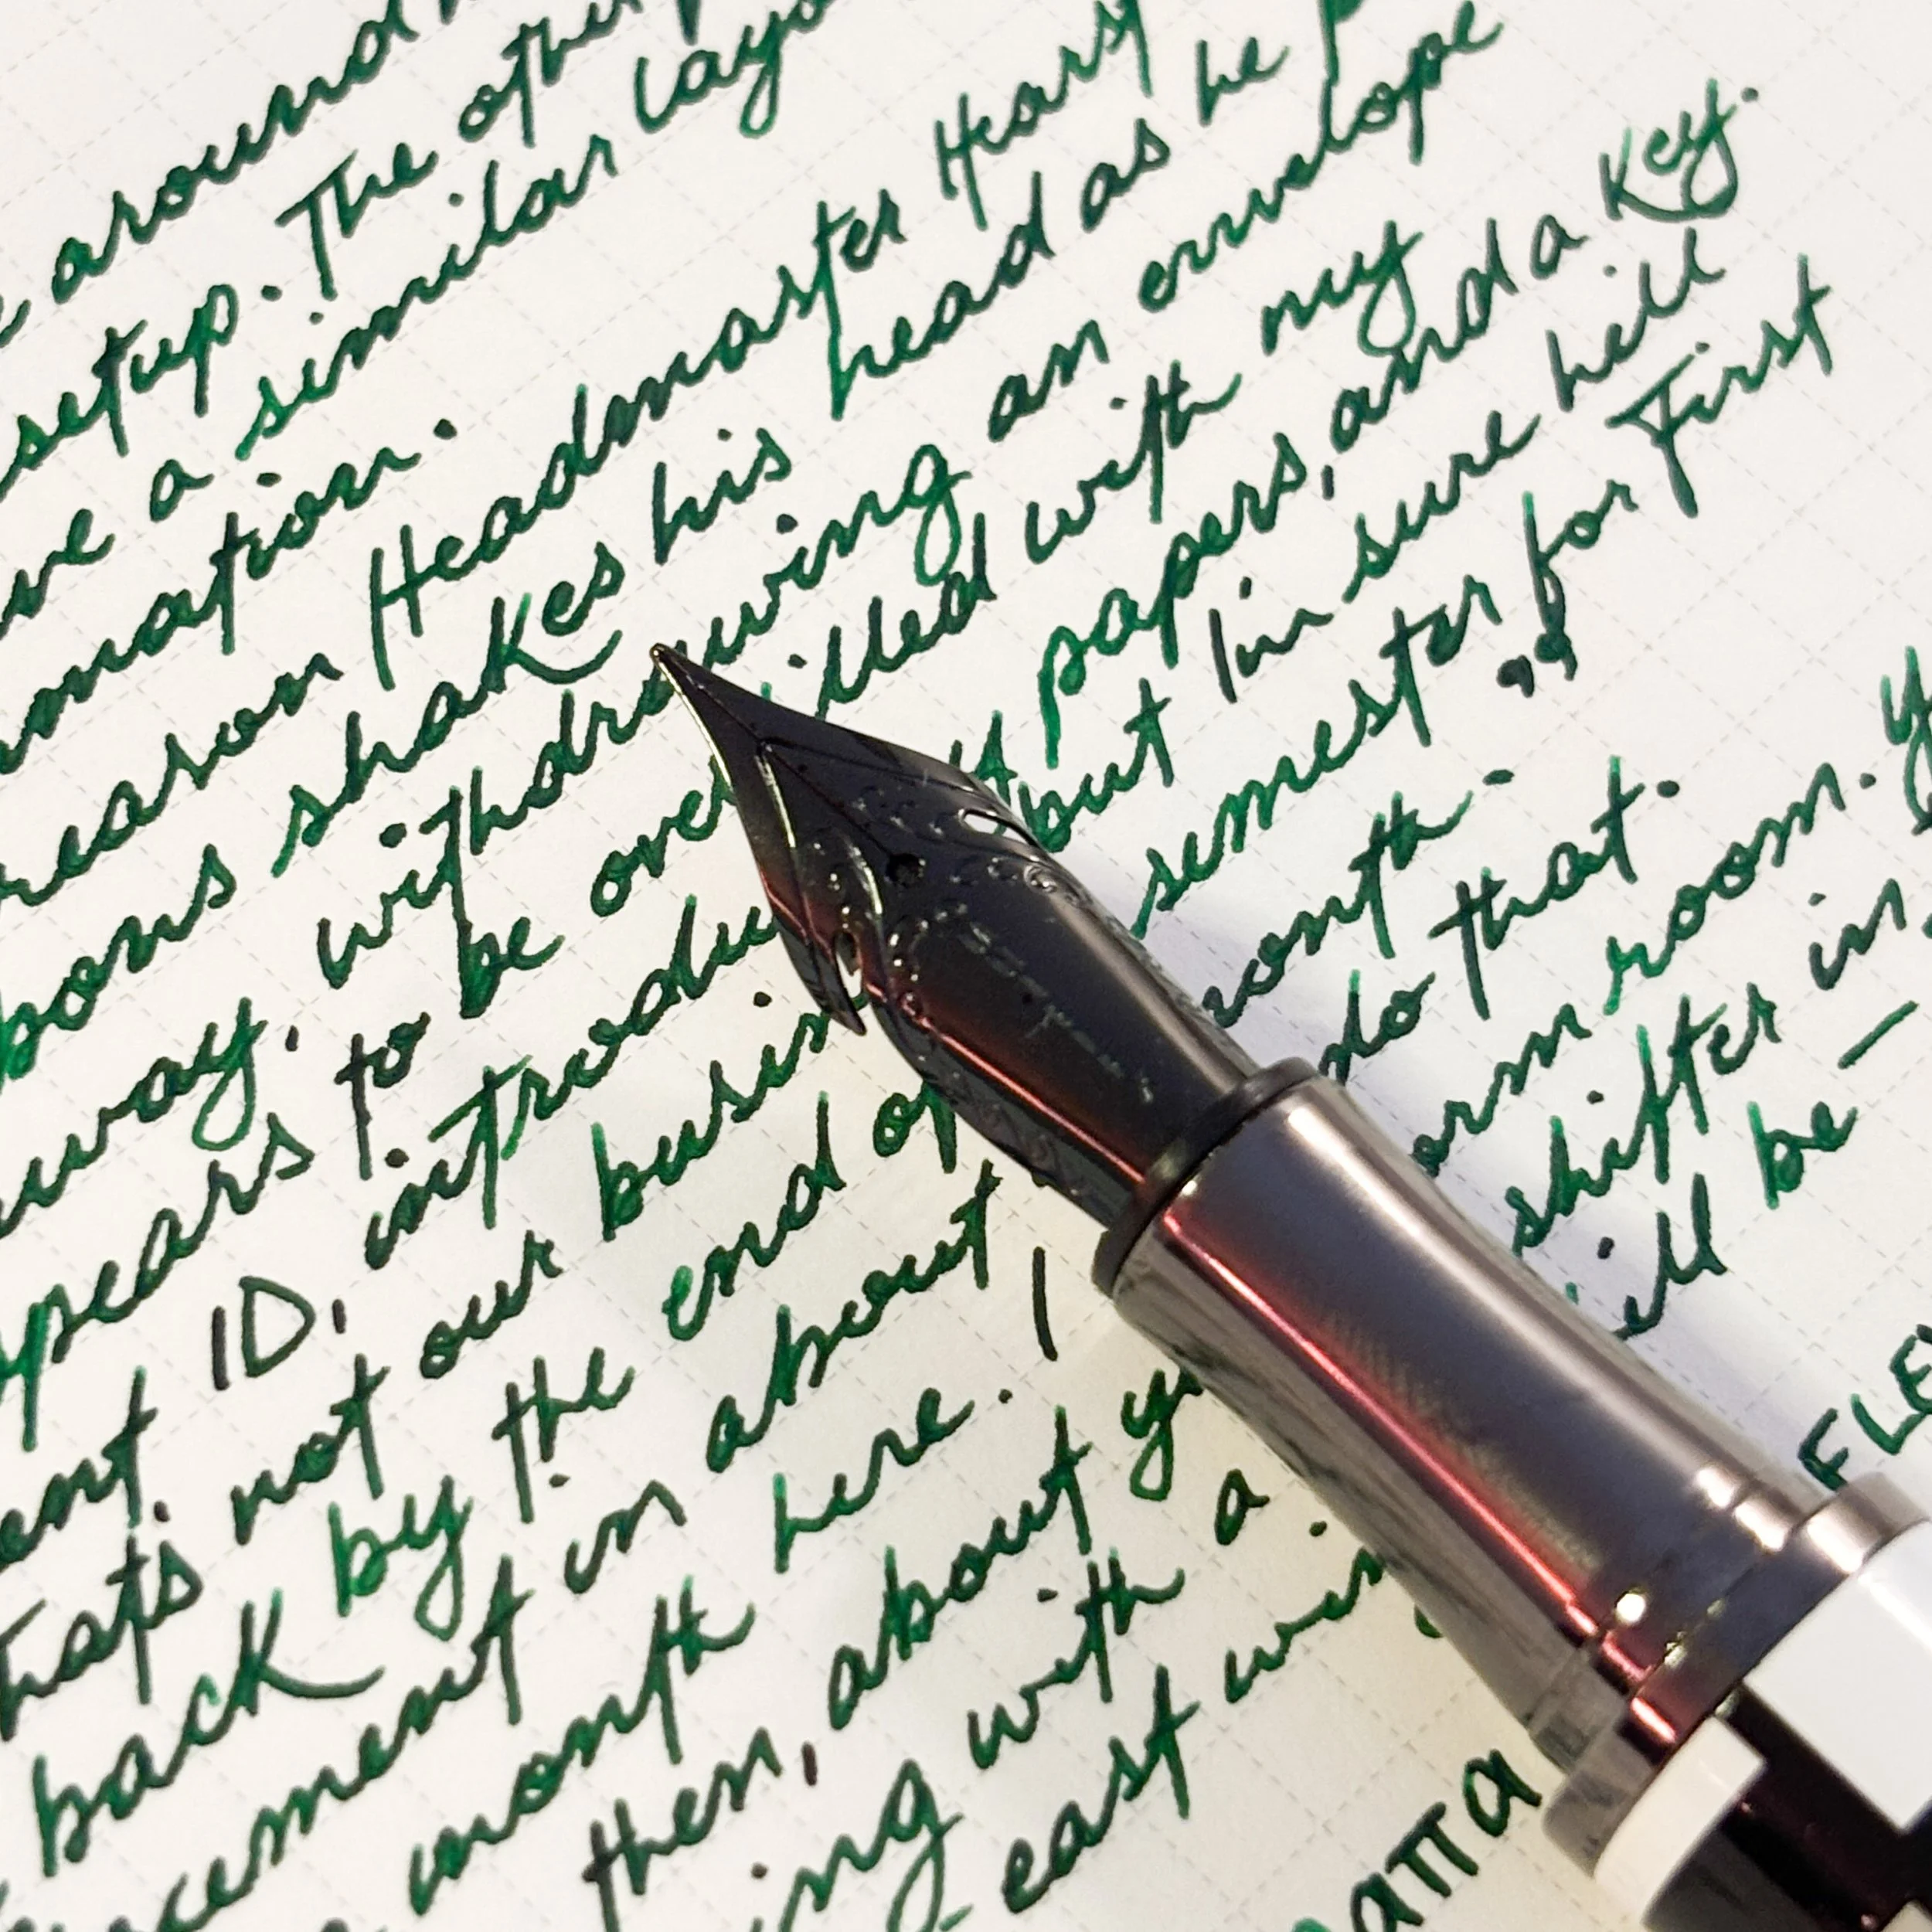 around
setup. The other
a similar
mation.
reason Headmaster Hearst
shakes his head as he
away, withdrawing an envelope
to be filled with my
ent ID, introdu papers, and a key.
That's not our busin but I'm sure he'll
back by the end of semester for First
cement in about onth. ”
month here. I do that.
then, about y orm room. Y
ing with a shifter in
east wi ill be —
anna FLE